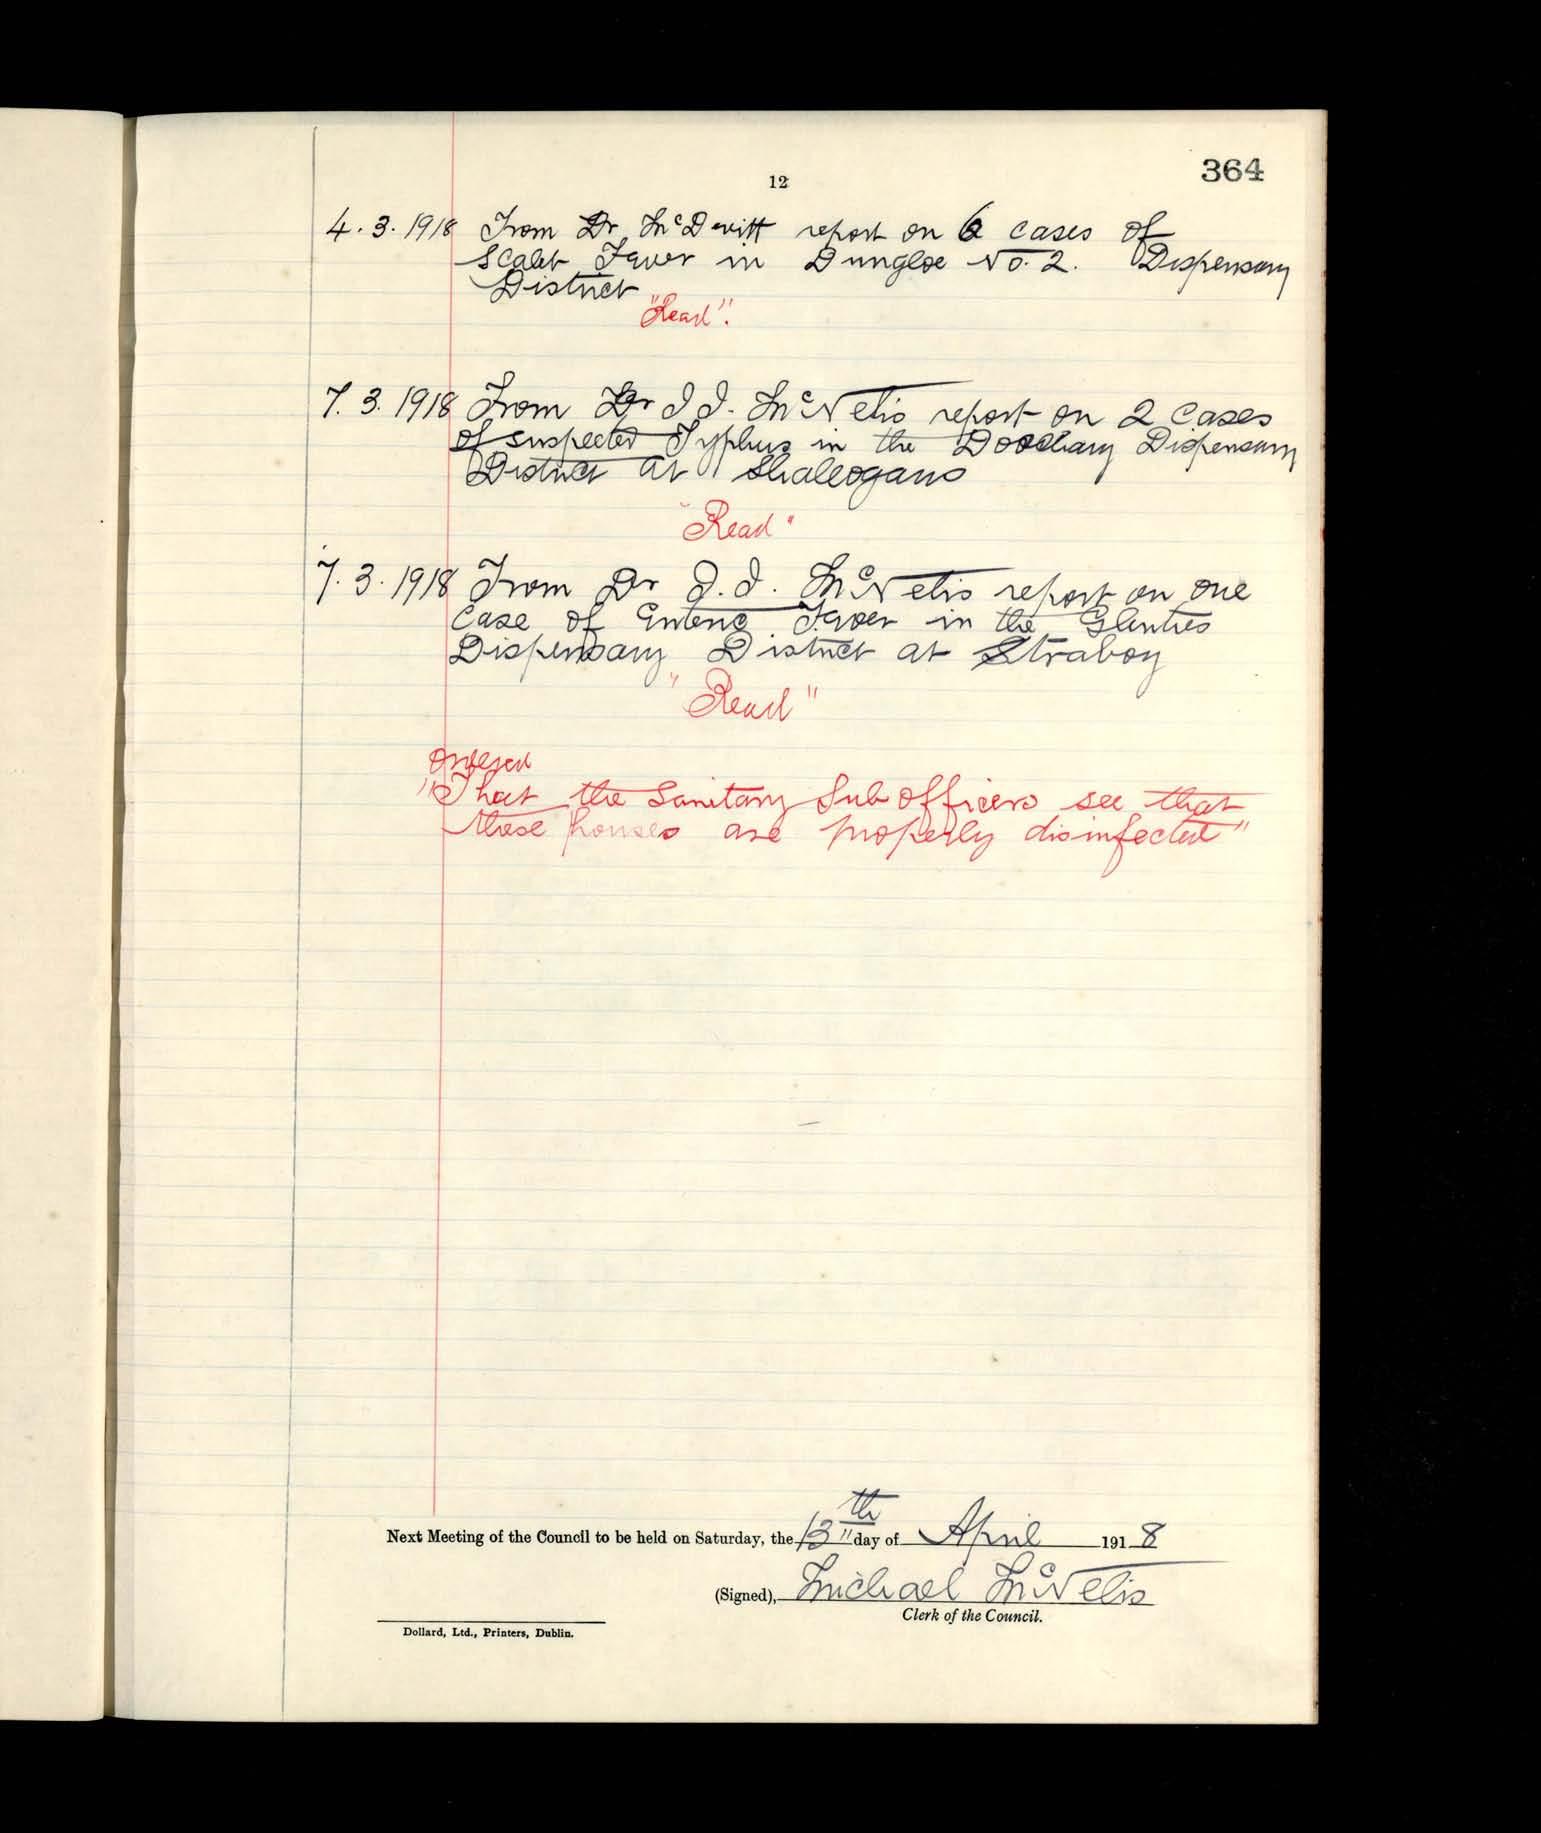 364
12
4.3.1918 From Dr McDevitt report on 6 cases of
Scalet Fever in Dungloe No. 2. Dispensary
District
"Read".
7.3.1918 From Dr J J. McNelis report on 2 cases
of suspected Typhus in the Doochary Dispensary
District at Shallogans
"Read"
7.3.1918 From Dr J.J. McNelis report on one
case of Enteric Fever in the Glenties
Dispensary District at Straboy
"Read"
Ordered
"That the Sanitary Sub officers see that
these houses are properly disinfected"
Next Meeting of the Council to be held on Saturday, the 13th day of April 1918
(Signed), Michael McNelis
Clerk of the Council.
Dollard, Ltd., Printers, Dublin.